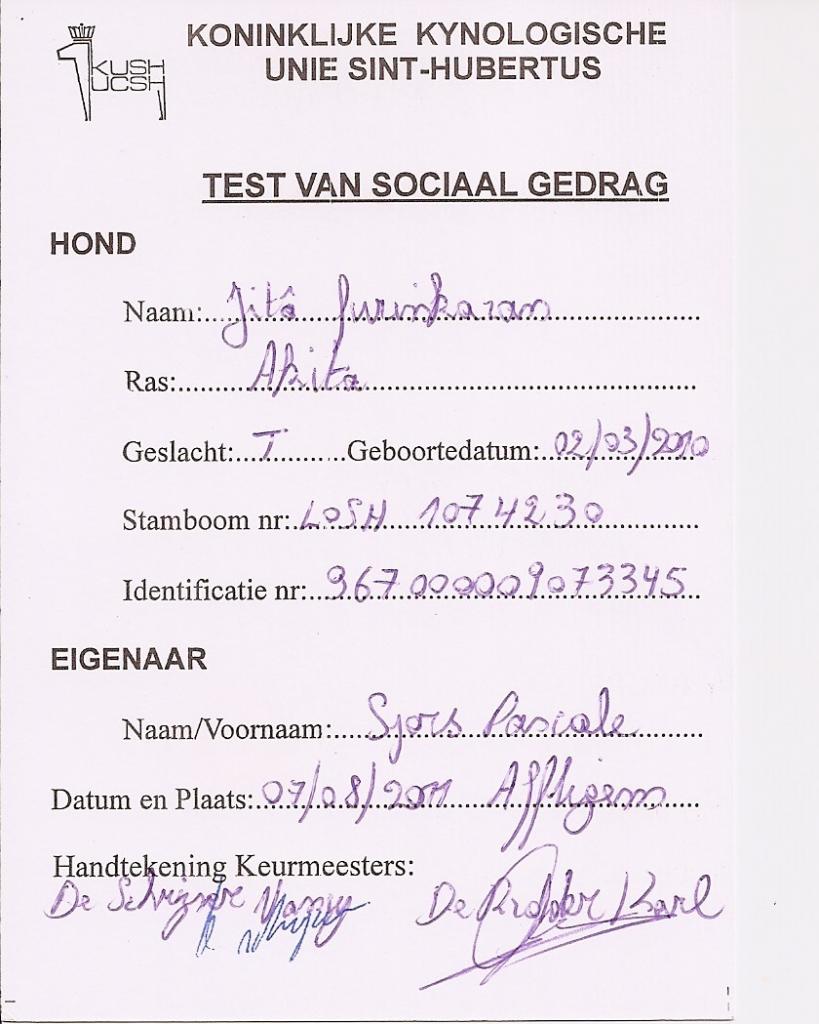 KUSH
UCSH
KONINKLIJKE KYNOLOGISCHE
UNIE SINT-HUBERTUS
TEST VAN SOCIAAL GEDRAG
HOND
Naam: Jitâ
Ras: Akita
Geslacht: T Geboortedatum: 02/03/2010
Stamboom nr: LOSH 1074230
Identificatie nr: 967000009073345
EIGENAAR
Naam/Voornaam: Sjors Pascale
Datum en Plaats: 07/08/2011 Affligem
Handtekening Keurmeesters:
De De Ridder Karl